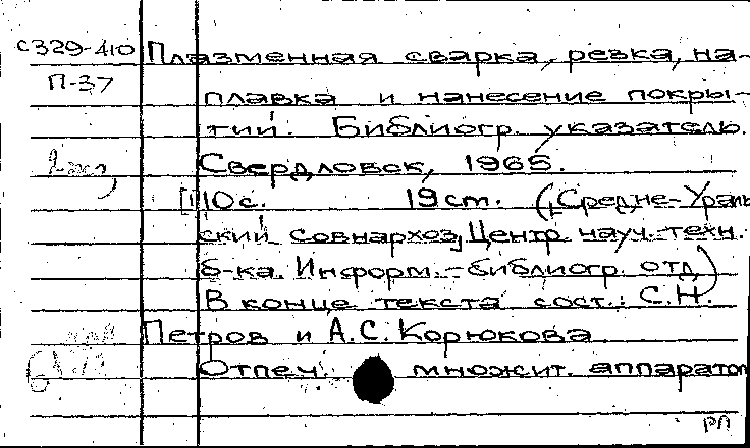 С329-410 Плазменная сварка, резка, на-
П-37
плавка и нанесение покры-
тий. Библиогр. указатель.
Свердловск, 1965.
110 с. 19 cm. (Средне-Ураль
ский совнархоз, Центр. науч.-техн.
б-ка. Информ.-библиогр. отд)
В конце текста сост.: С.Н.
Петров и А.С. Корюкова
Отпеч. множит. аппаратом
РП